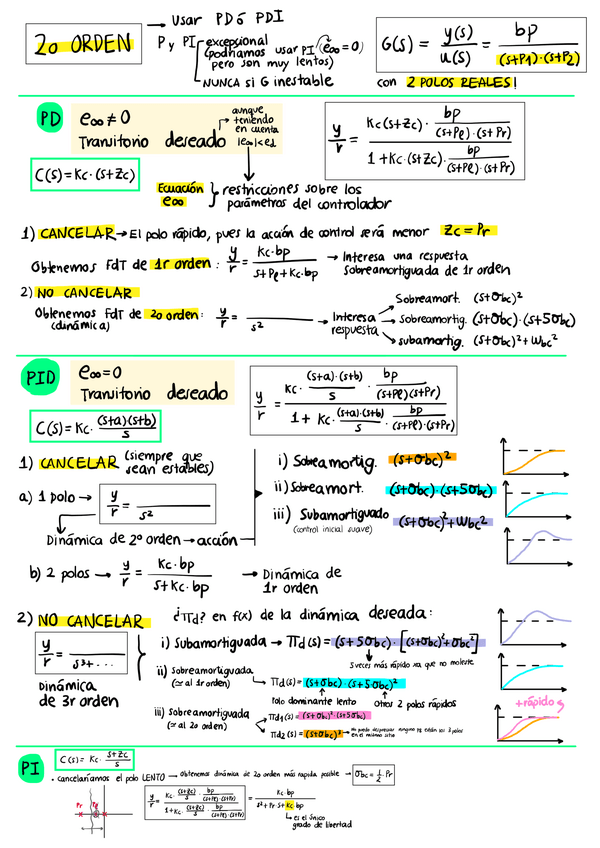 2o ORDEN
Usar PD ó PDI
P y PI
excepcional
(podríamos usar PI (e∞=0)
pero son muy lentos)
NUNCA si G inestable
G(s) = y(s)/u(s) = bp/((s+P1)·(s+P2))
con 2 POLOS REALES!
PD
e∞≠0
Transitorio deseado
aunque
teniendo
en cuenta
|e∞|<ed
C(s)=Kc·(s+Zc)
y/r = (Kc(s+Zc)· bp/((s+Pl)·(s+Pr)))/(1+Kc·(s+Zc)· bp/((s+Pl)·(s+Pr)))
Ecuación
e∞
restricciones sobre los
parámetros del controlador
1) CANCELAR → El polo rápido, pues la acción de control será menor Zc = Pr
Obtenemos FdT de 1r orden : y/r = Kc·bp/(s+Pl+Kc·bp) → Interesa una respuesta
sobreamortiguada de 1r orden
2) NO CANCELAR
Obtenemos FdT de 2o orden: y/r = /s²
(dinámica)
Interesa
respuesta
Sobreamort. (s+σbc)²
Sobreamortig. (s+σbc)·(s+5σbc)
subamortig. (s+σbc)²+Wbc²
PID
e∞=0
Transitorio deseado
C(s)=Kc·((s+a)(s+b))/s
y/r = (Kc·((s+a)·(s+b))/s · bp/((s+Pl)(s+Pr)))/(1+ Kc·((s+a)·(s+b))/s · bp/((s+Pl)·(s+Pr)))
1) CANCELAR (siempre que
sean estables)
a) 1 polo → y/r = /s²
Dinámica de 2º orden → acción
i) Sobreamortig. (s+σbc)²
ii) Sobreamort. (s+σbc)·(s+5σbc)
iii) Subamortiguado (s+σbc)²+Wbc²
(control inicial suave)
b) 2 polos → y/r = Kc·bp/(s+Kc·bp) → Dinámica de
1r orden
2) NO CANCELAR
¿Πd? en f(x) de la dinámica deseada:
y/r = /s³+...
Dinámica
de 3r orden
i) Subamortiguada → Πd(s) = (s+5σbc)·[(s+σbc)²+σbc²]
5 veces más rápido xa que no moleste
ii) Sobreamortiguada
(≃ al 1r orden)
Πd(s) = (s+σbc)·(s+5σbc)²
Polo dominante lento
Otros 2 polos rápidos
iii) Sobreamortiguada
(≃ al 2o orden)
Πd1(s) = (s+σbc)²(s+5σbc)
Πd2(s) = (s+σbc)³
no puedo despreciar ninguno xq están los 3 polos
en el mismo sitio
+rápido
PI
C(s) = Kc·(s+Zc)/s
• Cancelaríamos el polo LENTO → Obtenemos dinámica de 2o orden mas rapida posible → σbc = 1/2·Pr
Pr
Pl
y/r = (Kc·(s+Zc)/s · bp/((s+Pl)·(s+Pr)))/(1+Kc·(s+Zc)/s · bp/((s+Pl)·(s+Pr))) = Kc·bp/(s²+Pr·s+Kc·bp)
es el único
grado de libertad